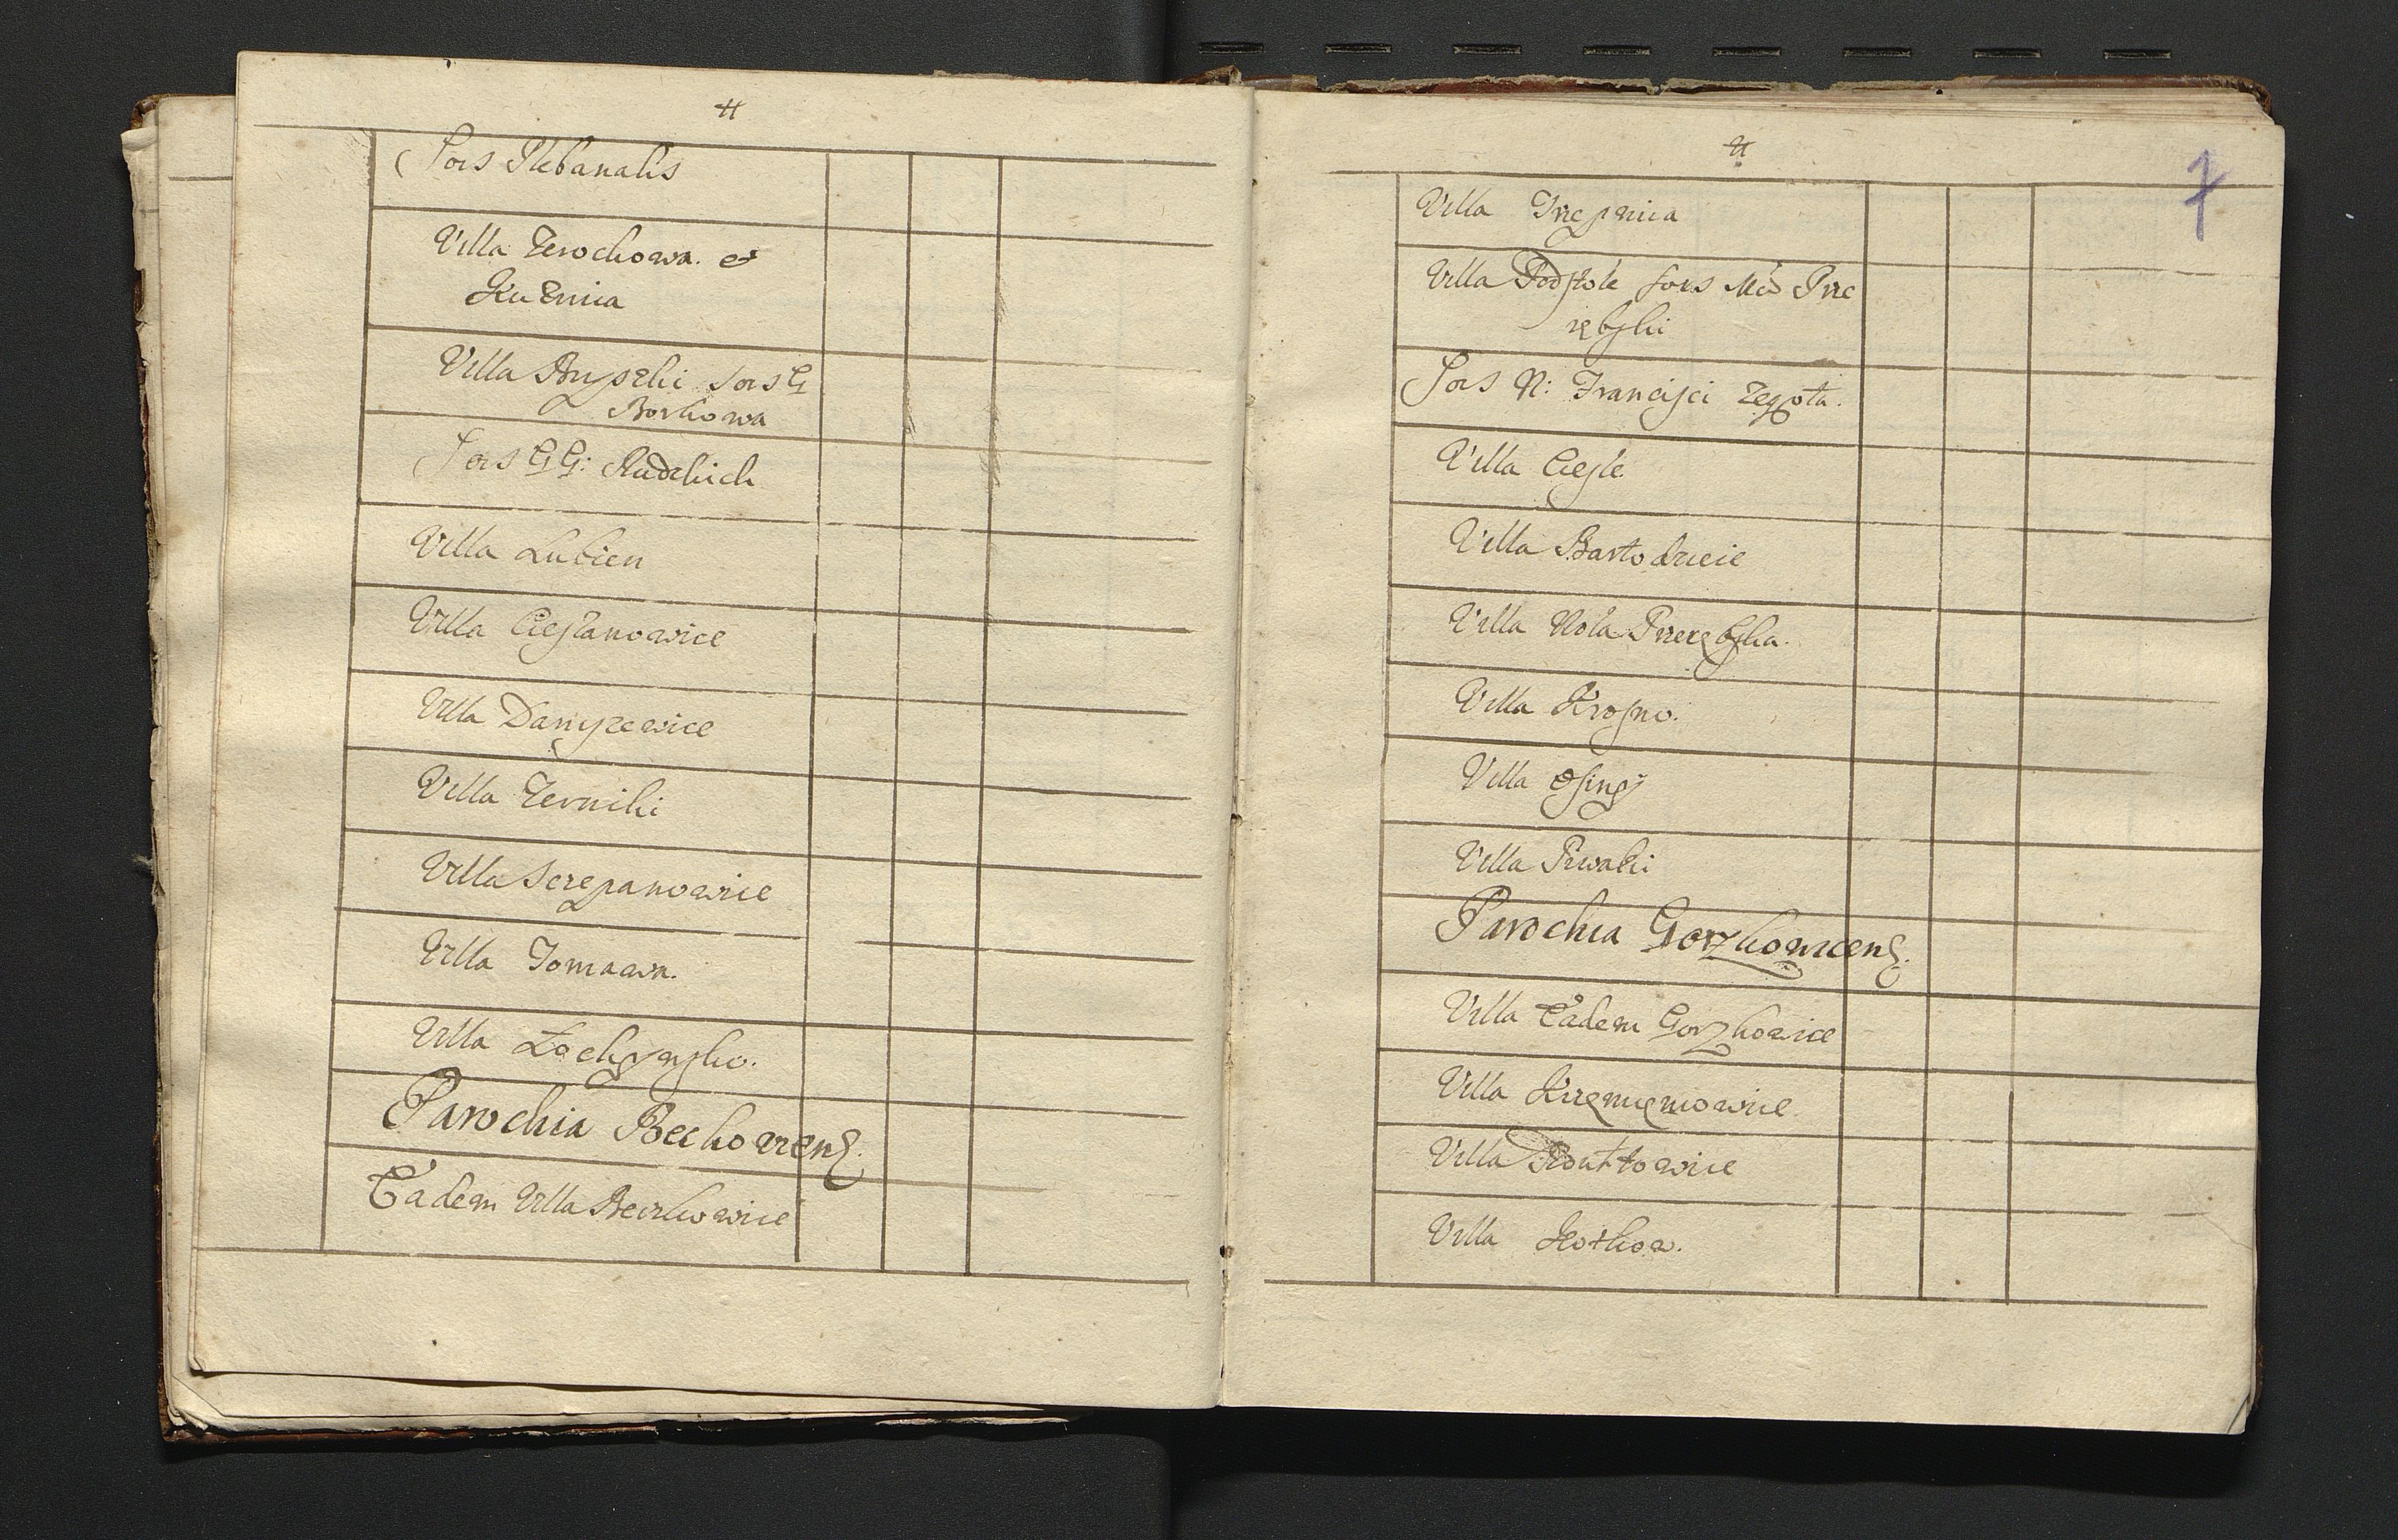 Sors Plebanalis
Villa Zerochowa. et
Kuznica
Villa Buyszki Sors G
Borkowa
Sors GG: Rudzkich
Villa Lubien
Villa Cieslanowice
Villa Danyszewice
Villa Zerniki
Villa Sczepanowice
Villa Tomaawa.
Villa Lochynsko.
Parochia Beckoviens.
Eadem Villa Beczkowice
7
Villa Trzepnica
Villa Podstole sors Mci Prze
rębski
Sors N: Francisci Zegota.
Villa Ciesle
Villa Bartodzieie
Villa Wola Przerębska.
Villa Krosno.
Villa Osiny
Villa Piwaki
Parochia Gorzkowicens.
Villa Eadem Gorzkowice
Villa Krzemieniowice
Villa Plouttowice
Villa Kotkow.